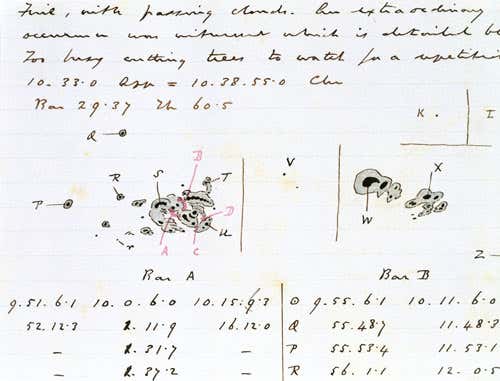 Fine, with passing clouds. An extraordinary
occurrence was witnessed which is detailed be
Too busy cutting trees to watch for a repetiti
10.33.0 App = 10.38.55.0 Chr
Bar 29.37 Th 60.5
K . I
Q
V
B
R S T X
P
D
W
r A C U
Z
Bar A Bar B
9.51.6.1 10.0.6.0 10.15.9.3 O 9.55.6.1 10.11.6.0
52.12.3 2.11.9 16.12.0 Q 55.48.7 11.48.3
– 2.31.7 – P 55.53.4 11.53.1
– 2.37.2 – R 56.1.1 12.0.5